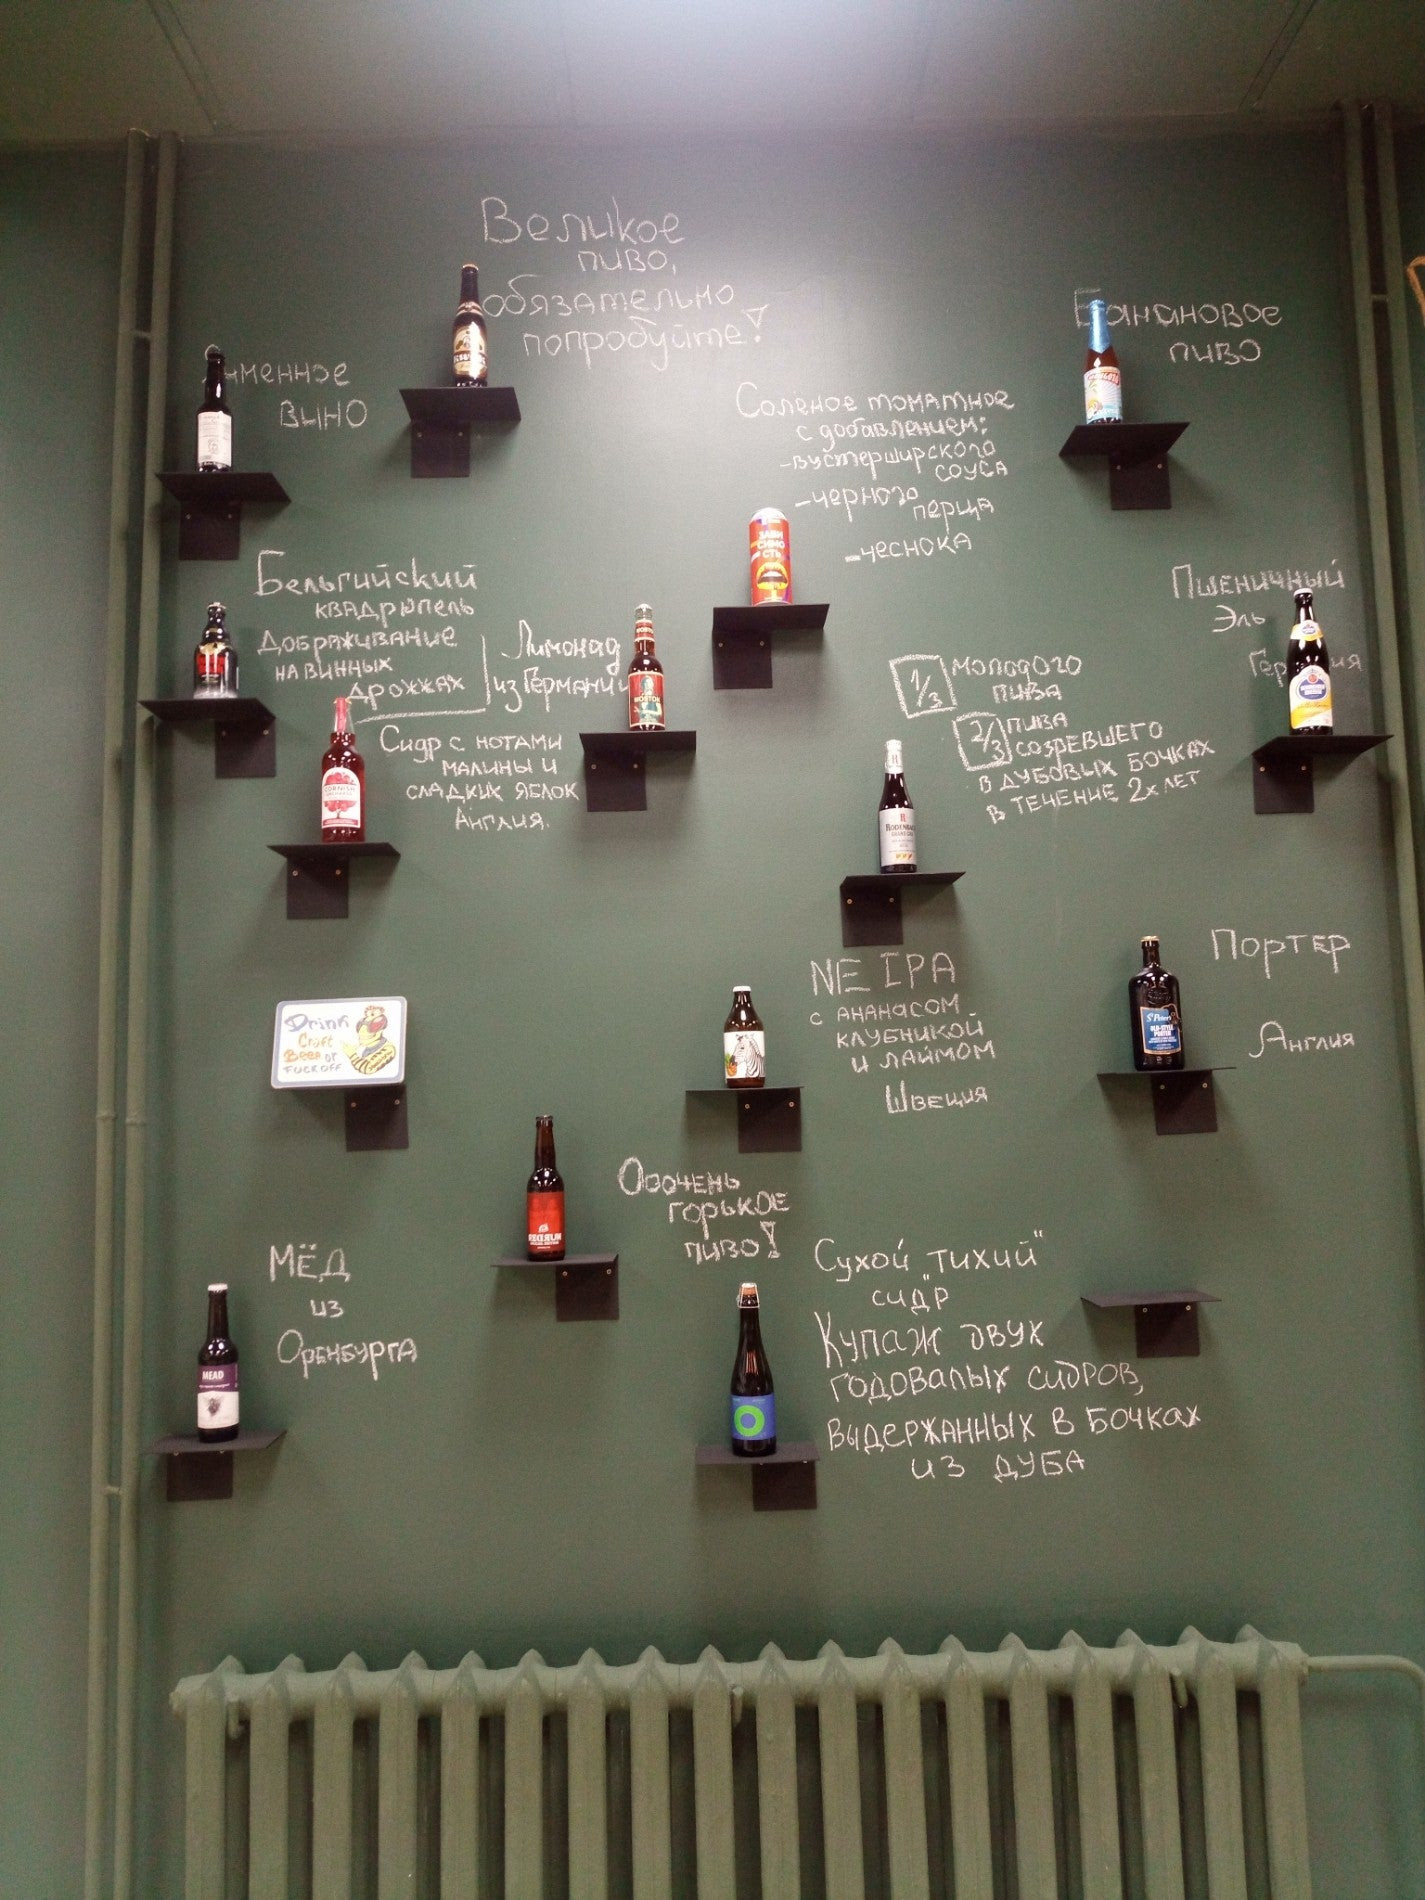 Великое
пиво,
обязательно
попробуйте!
Банановое
пиво
Ячменное
выно
Соленое томатное
с добавлением:
-вустерширского
соуса
-черного
перца
-чеснока
ЗАВИ
СИМО
СТЬ
Бельгийский
квадрюпель
Дображивание
на винных
дрожжах
Лимонад
из Германии
Пшеничный
Эль
Германия
1/3 молодого
пива
2/3 пива
созревшего
в дубовых бочках
в течение 2х лет
RODENBACH
Сидр с нотами
малины и
сладких яблок
Англия.
CORNISH
NE IPA
с ананасом
клубникой
и лаймом
Швеция
Портер
Англия
St Peter's
OLD-STYLE
PORTER
Drink
Craft
Beer or
FUCK OFF
Ооочень
горькое
пиво!
Мёд
из
Оренбурга
MEAD
Сухой "тихий"
сидр
Купаж двух
годовалых сидров,
выдержанных в бочках
из дуба